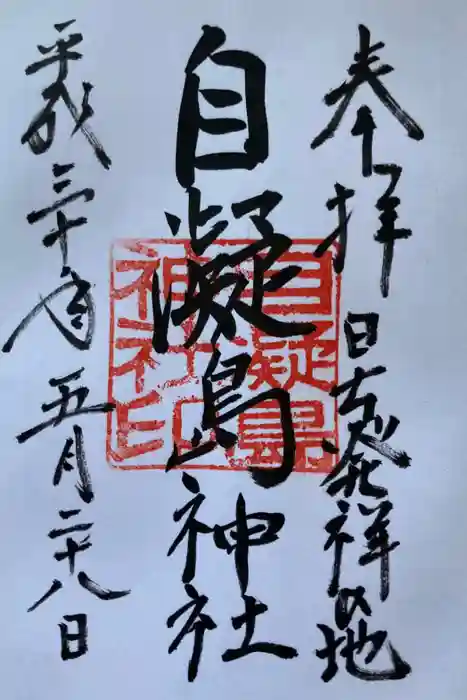 奉拝
日本発祥の地
自凝島神社
平成三十年五月二十八日
自凝島
神社印